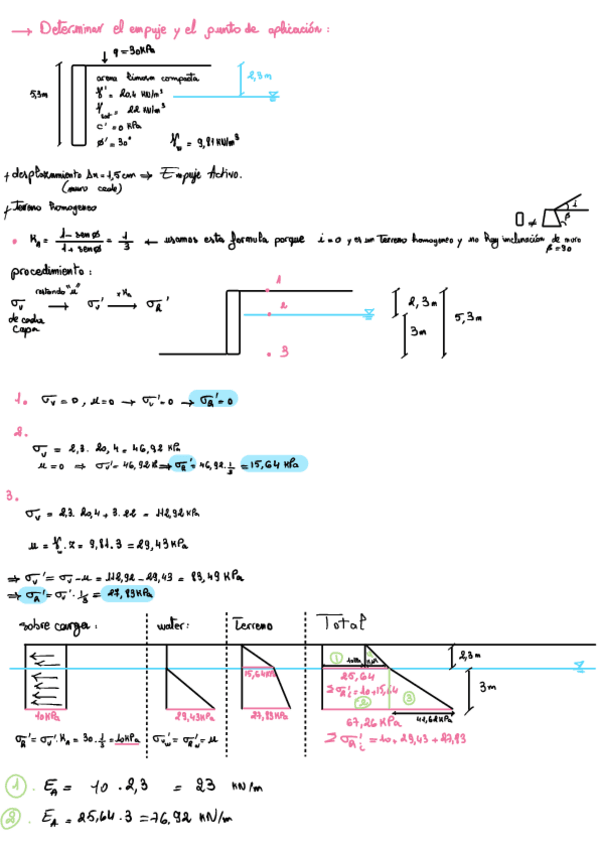 → Determinar el empuje y el punto de aplicación:
q = 30KPa
5,3m
arena limosa compacta
2,3m
γ' = 20,4 KN/m³
γsat = 22 KN/m³
c' = 0 KPa
φ' = 30°
γw = 9,81 KN/m³
+ desplazamiento Δx = 1,5cm ⇒ Empuje Activo.
(muro cede)
+ Terreno homogeneo
• KA = 1 - senφ / 1 + senφ = 1/3 ← usamos esta formula porque i = 0 y es un Terreno homogeneo y no hay inclinación de muro
β = 90
0 ≠
i
β
procedimiento:
restando "u"
· KA
σv → σv' → σR'
de cada
capa
1
2
3
2,3m
3m
5,3m
1. σv = 0, u = 0 → σv' = 0 → σR' = 0
2.
σv = 2,3 · 20,4 = 46,92 KPa
u = 0 ⇒ σv' = 46,92 K ⇒ σR' = 46,92 · 1/3 = 15,64 KPa
3.
σv = 2,3 · 20,4 + 3 · 22 = 112,92 KPa
u = γw · z = 9,81 · 3 = 29,43 KPa
⇒ σv' = σv - u = 112,92 - 29,43 = 83,49 KPa
⇒ σR' = σv' · 1/3 = 27,83 KPa
sobre carga:
water:
Terreno
Total
10KPa
29,43KPa
15,64KPa
27,83KPa
1
2
3
25,64
Σσ'Ri = 10 + 15,64
67,26 KPa
41,62KPa
2,3m
3m
σR' = σv' · KA = 30 · 1/3 = 10KPa
σv'w = σR'w = u
Σσ'Ri = 10 + 29,43 + 27,83
1. EA = 10 · 2,3 = 23 KN/m
2. EA = 25,64 · 3 = 76,92 KN/m